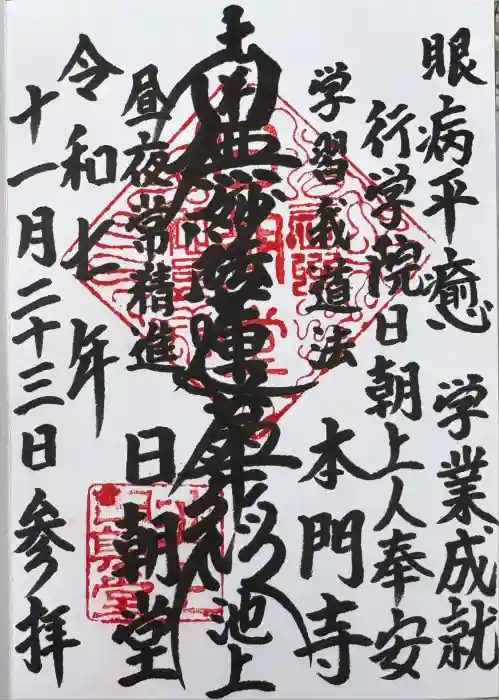 眼病平癒 学業成就
行学院日朝上人奉安
学習我道法 本門寺
南無妙法蓮華経 池上
昼夜常精進 日朝堂
令和七年
十一月二十三日参拝